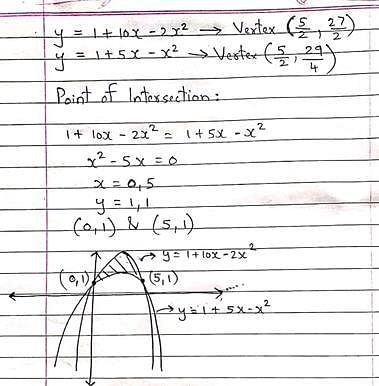 y = 1 + 10x - 2x² → Vertex (5/2, 27/2)
y = 1 + 5x - x² → Vertex (5/2, 29/4)
Point of Intersection :
1 + 10x - 2x² = 1 + 5x - x²
x² - 5x = 0
x = 0, 5
y = 1, 1
(0,1) & (5,1)
→ y = 1 + 10x - 2x²
(0,1) (5,1)
→ y = 1 + 5x - x²